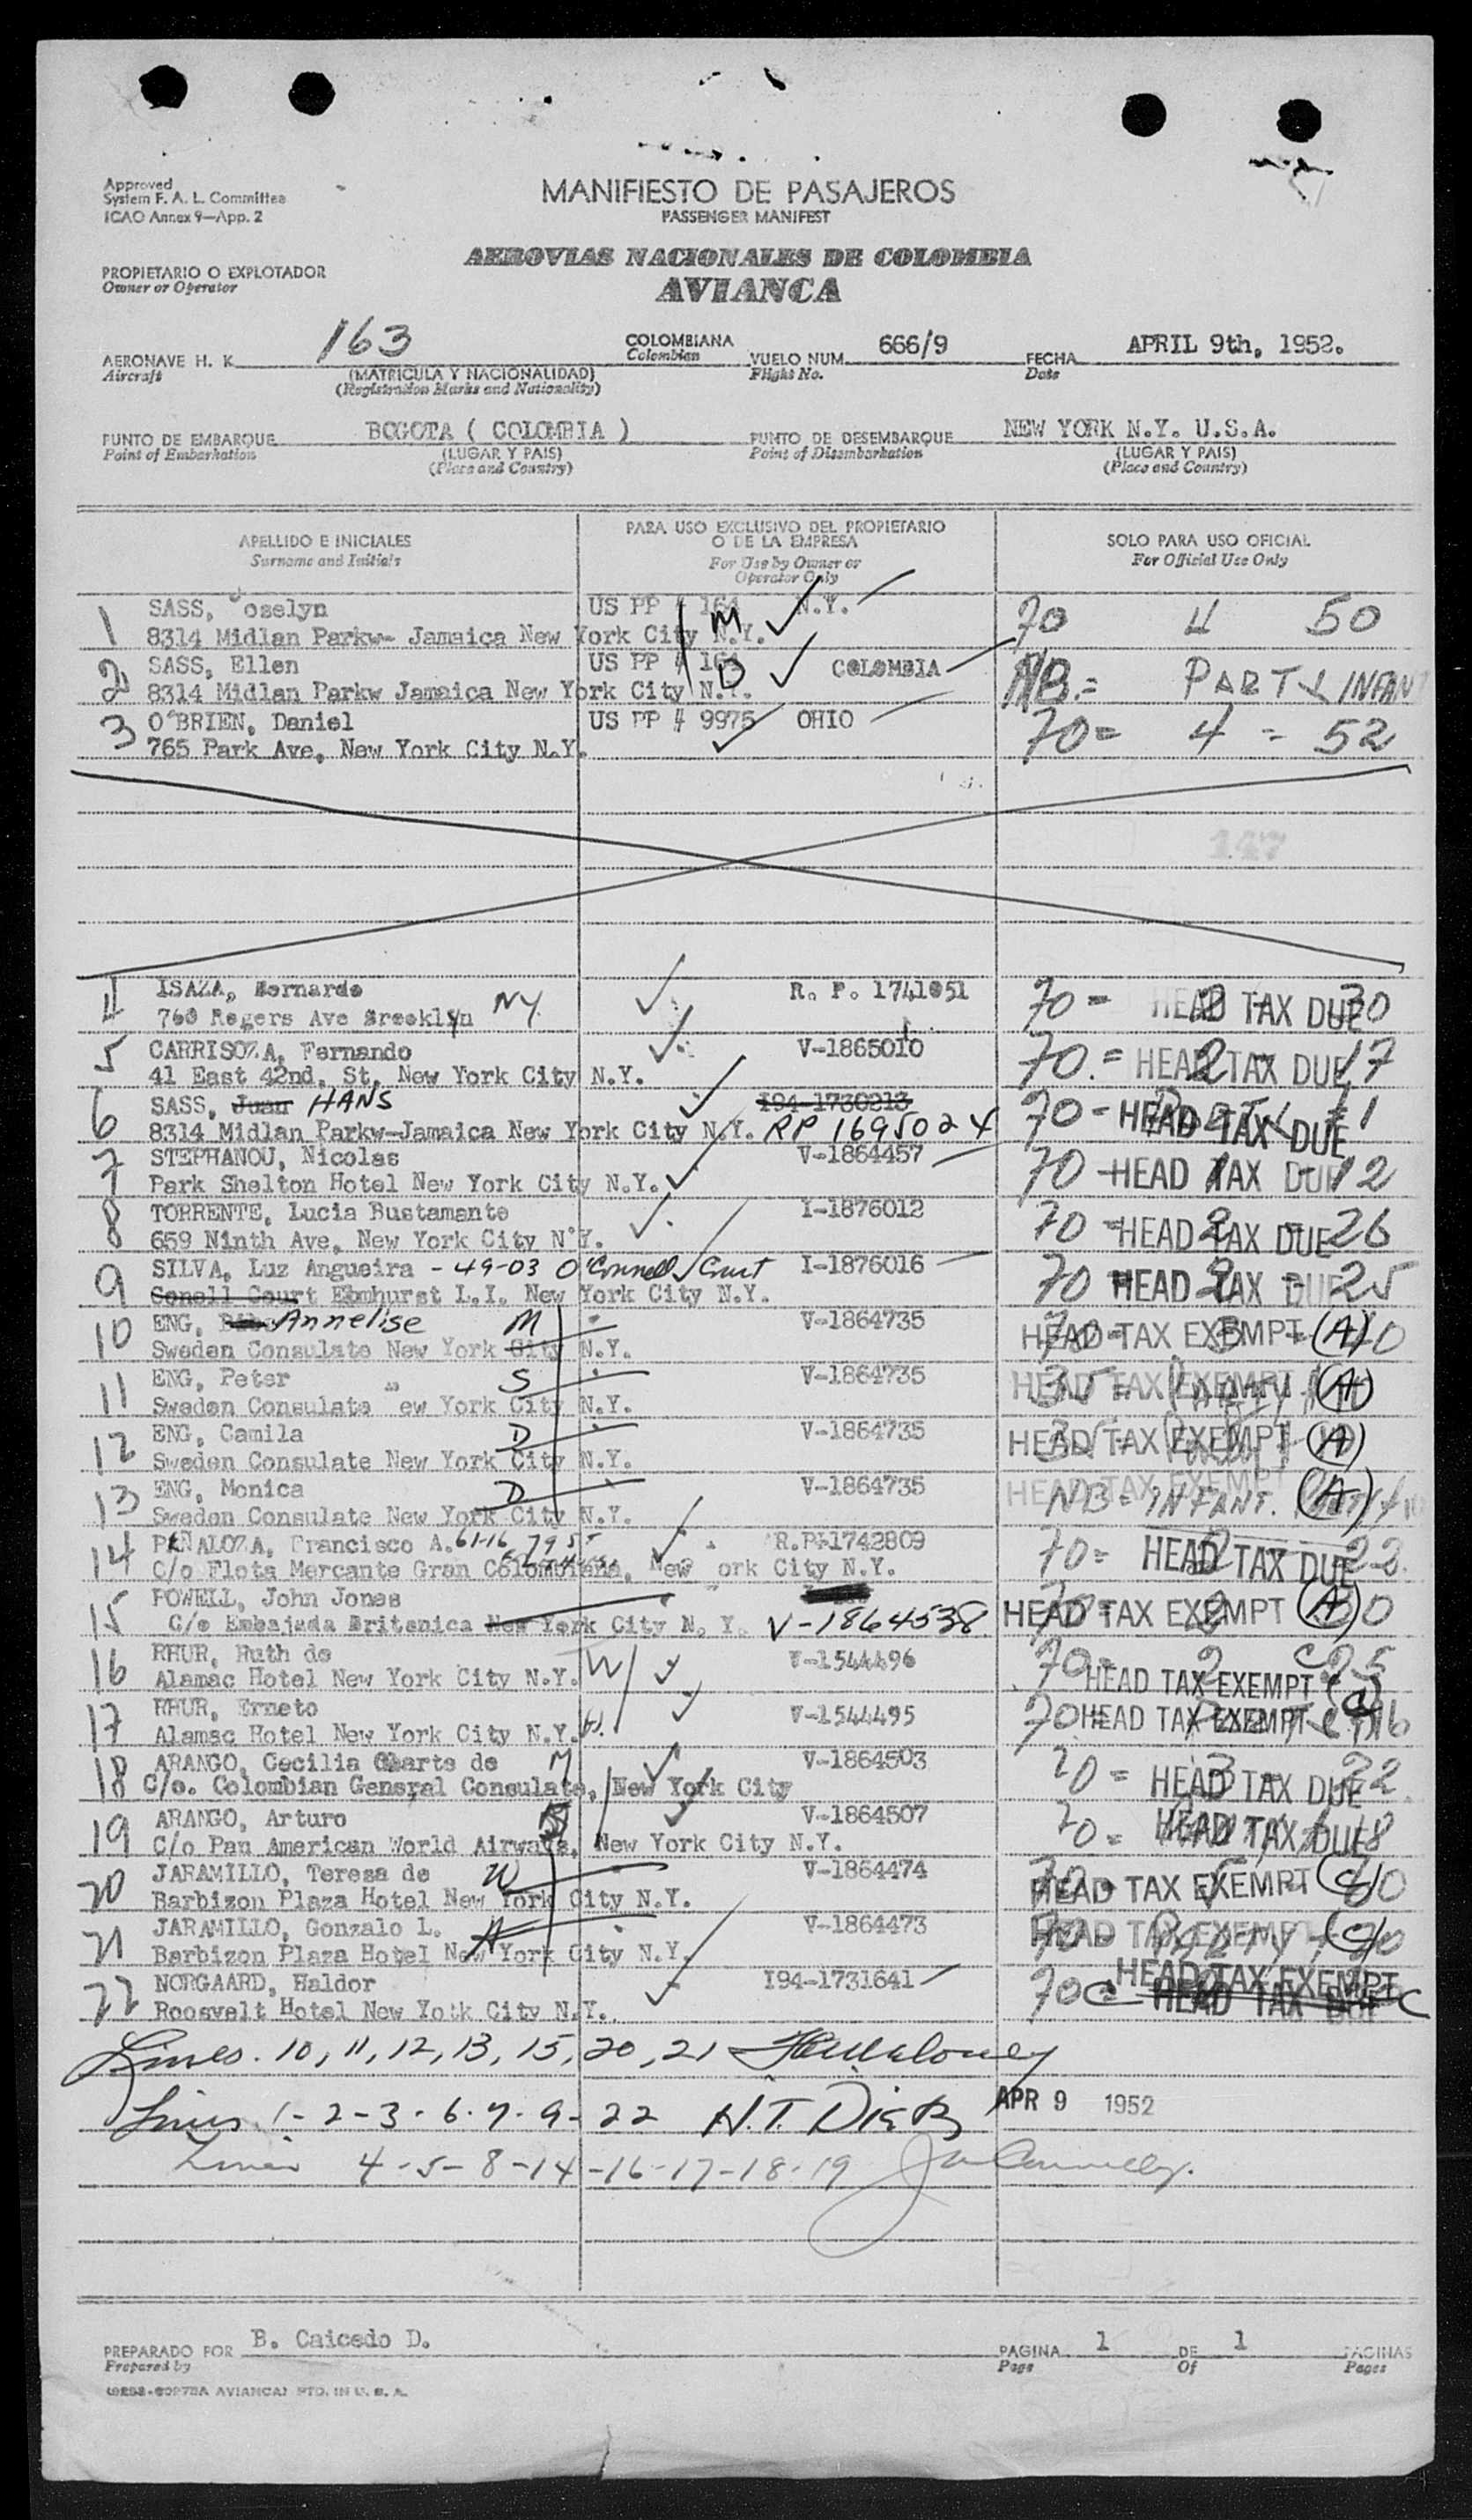 Approved
System F. A. L. Committee
ICAO Annex 9—App. 2
MANIFIESTO DE PASAJEROS
PASSENGER MANIFEST
AEROVIAS NACIONALES DE COLOMBIA
AVIANCA
PROPIETARIO O EXPLOTADOR
Owner or Operator
AERONAVE H. K. 163 COLOMBIANA VUELO NUM. 666/9 FECHA APRIL 9th, 1952.
Aircraft (MATRICULA Y NACIONALIDAD) Colombian Flight No. Date
(Registration Marks and Nationality)
PUNTO DE EMBARQUE BOGOTA ( COLOMBIA ) PUNTO DE DESEMBARQUE NEW YORK N.Y. U.S.A.
Point of Embarkation (LUGAR Y PAIS) Point of Disembarkation (LUGAR Y PAIS)
(Place and Country) (Place and Country)
APELLIDO E INICIALES PARA USO EXCLUSIVO DEL PROPIETARIO O DE LA EMPRESA SOLO PARA USO OFICIAL
Surname and Initials For Use by Owner or Operator Only For Official Use Only
1 SASS, Joselyn US PP # 164 M N.Y. 70 4 50
8314 Midlan Parkw- Jamaica New York City N.Y.
2 SASS, Ellen US PP # 164 D COLOMBIA NB.= PART 1 INFANT
8314 Midlan Parkw Jamaica New York City N.Y.
3 O'BRIEN, Daniel US PP # 9975 OHIO 70= 4 - 52
765 Park Ave, New York City N.Y.
147
4 ISAZA, Bernardo R. P. 1741051 70= HEAD TAX DUE 30
760 Rogers Ave Brooklyn NY.
5 CARRISOZA, Fernando V-1865010 70.= HEAD TAX DUE 17
41 East 42nd. St. New York City N.Y.
6 SASS, Juan HANS I94-1730213 70- HEAD TAX DUE
8314 Midlan Parkw-Jamaica New York City N.Y. RP 1695024
7 STEPHANOU, Nicolas V-1864457 70 HEAD TAX DUE 12
Park Shelton Hotel New York City N.Y.
8 TORRENTE, Lucia Bustamante I-1876012 70 HEAD TAX DUE 26
659 Ninth Ave, New York City N.Y.
9 SILVA, Luz Angueira - 49-03 O'Connell Court I-1876016 70 HEAD TAX DUE 25
Conell Court Elmhurst L.I. New York City N.Y.
10 ENG, Annelise M V-1864735 HEAD TAX EXEMPT (A)
Sweden Consulate New York City N.Y.
11 ENG, Peter S V-1864735 HEAD TAX EXEMPT (A)
Sweden Consulate ew York City N.Y.
12 ENG, Camila D V-1864735 HEAD TAX EXEMPT (A)
Sweden Consulate New York City N.Y.
13 ENG, Monica D V-1864735 HEAD TAX EXEMPT NB= INFANT. (A)
Sweden Consulate New York City N.Y.
14 PEÑALOZA, Francisco A. 61-16 79 R.P.1742809 70= HEAD TAX DUE 23
C/o Flota Mercante Gran Colombiana, New ork City N.Y.
15 POWELL, John Jones HEAD TAX EXEMPT (A)
C/o Embajada Britanica New York City N. Y. V-1864538
16 RHUR, Ruth de W V-1544496 70= HEAD TAX EXEMPT (C)
Alamac Hotel New York City N.Y.
17 RHUR, Erneto H. V-1544495 70 HEAD TAX EXEMPT
Alamac Hotel New York City N.Y.
18 ARANGO, Cecilia Uarte de M V-1864503 70= HEAD TAX DUE 22
C/o. Colombian General Consulate, New York City
19 ARANGO, Arturo V-1864507 70= HEAD TAX DUE 18
C/o Pan American World Airways, New York City N.Y.
20 JARAMILLO, Teresa de W V-1864474 HEAD TAX EXEMPT (C)
Barbizon Plaza Hotel New York City N.Y.
21 JARAMILLO, Gonzalo L. H V-1864473 HEAD TAX EXEMPT (C)
Barbizon Plaza Hotel New York City N.Y.
22 NORGAARD, Haldor I94-1731641 70 HEAD TAX EXEMPT HEAD TAX DUE
Roosvelt Hotel New Yotk City N.Y.
Lines. 10, 11, 12, 13, 15, 20, 21
Lines 1-2-3-6-7-9-22 APR 9 1952
Lines 4-5-8-14-16-17-18-19
PREPARADO POR B. Caicedo D. PAGINA 1 DE 1 PAGINAS
Prepared by Page Of Pages
AVIANCA) PTD. IN U. S. A.